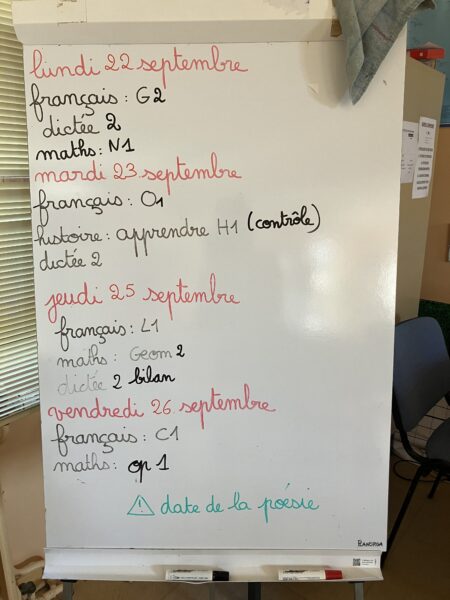 lundi 22 septembre
français : G2
dictée 2
maths : N1
mardi 23 septembre
français : O1
histoire : apprendre H1 (contrôle)
dictée 2
jeudi 25 septembre
français : L1
maths : Geom 2
dictée 2 bilan
vendredi 26 septembre
français : C1
maths : op 1
⚠ date de la poésie